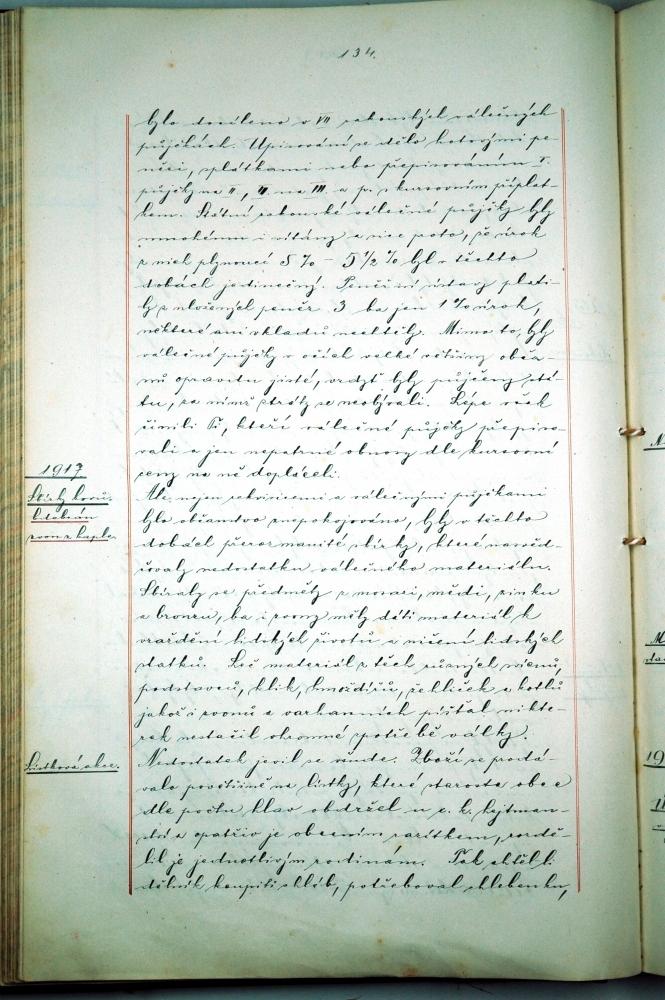 134.
bylo docíleno v VII rakouských válečných
půjčkách. Upisování se dělo hotovými pe-
něži, splátkami nebo přepisováním I.
půjčky na II, II. na III. a p. s kursovním příplat-
kem. Státní rakouské válečné půjčky byly
mnohému i vítány a sice proto, že úrok
z nich plynoucí 5 % – 5 1/2 % byl v těchto
dobách jedinečný. Peněžní ústavy plati-
ly z vložených peněz 3 ba jen 1 % úrok,
některé ani vkladů nechtěly. Mimo to, byly
válečné půjčky v očích velké většiny obča-
nů opravdu jisté, vždyť byly půjčeny stá-
tu, za nímž ztráty se neobávali. Lépe však
činili ti, kteří válečné půjčky přepiso-
vali a jen nepatrné obnosy dle kursovní
ceny na ně dopláceli.
1917
Sbírky kovů.
Odebrán
zvon z kaple.
Ale nejen rekvisicemi a válečnými půjčkami
bylo občanstvo znepokojováno, byly v těchto
dobách přerozmanité sbírky, které nasvěd-
čovaly nedostatku válečného materiálu.
Sbíraly se předměty z mosazi, mědi, zinku
a bronzu, ba i zvony měly dáti materiál k
vraždění lidských životů a ničení lidských
statků. Leč materiál z těch různých
podstavců, klik, hmoždířů, žehliček a kotlů
jakož i zvonů a varhanních píšťal nikte-
rak nestačil ohromné potřebě války.
Lístková akce.
Nedostatek jevil se všude. Zboží se prodá-
valo povětšině na lístky, které starosta obce
dle počtu hlav obdržel u c. k. hejtman-
ství a opatřiv je obecním razítkem, rozdě-
lil je jednotlivým rodinám. Tak chtěl-li
dělník koupiti chléb, potřeboval chlebenku,